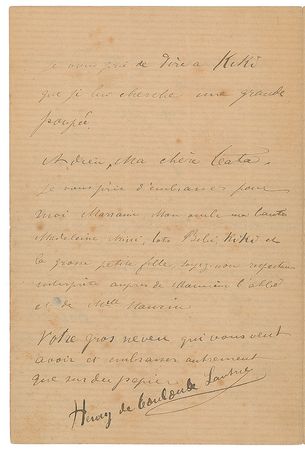 je vous prie de dire a Kiki
que je lui cherche une grande
poupée.
Adieu, Ma chère tata.
Je vous prie d'embrasser pour
moi Maman Mon oncle ma tante
Madeleine Mimi, toto Bébé, Kiki et
la grosse petite fille, soyez mon respectueux
interprète auprès de Monsieur l'abbé
et de Melle
Votre gros neveu qui vous veut
avoir et embrasser autrement
que sur du papier
Henry de Toulouse Lautrec